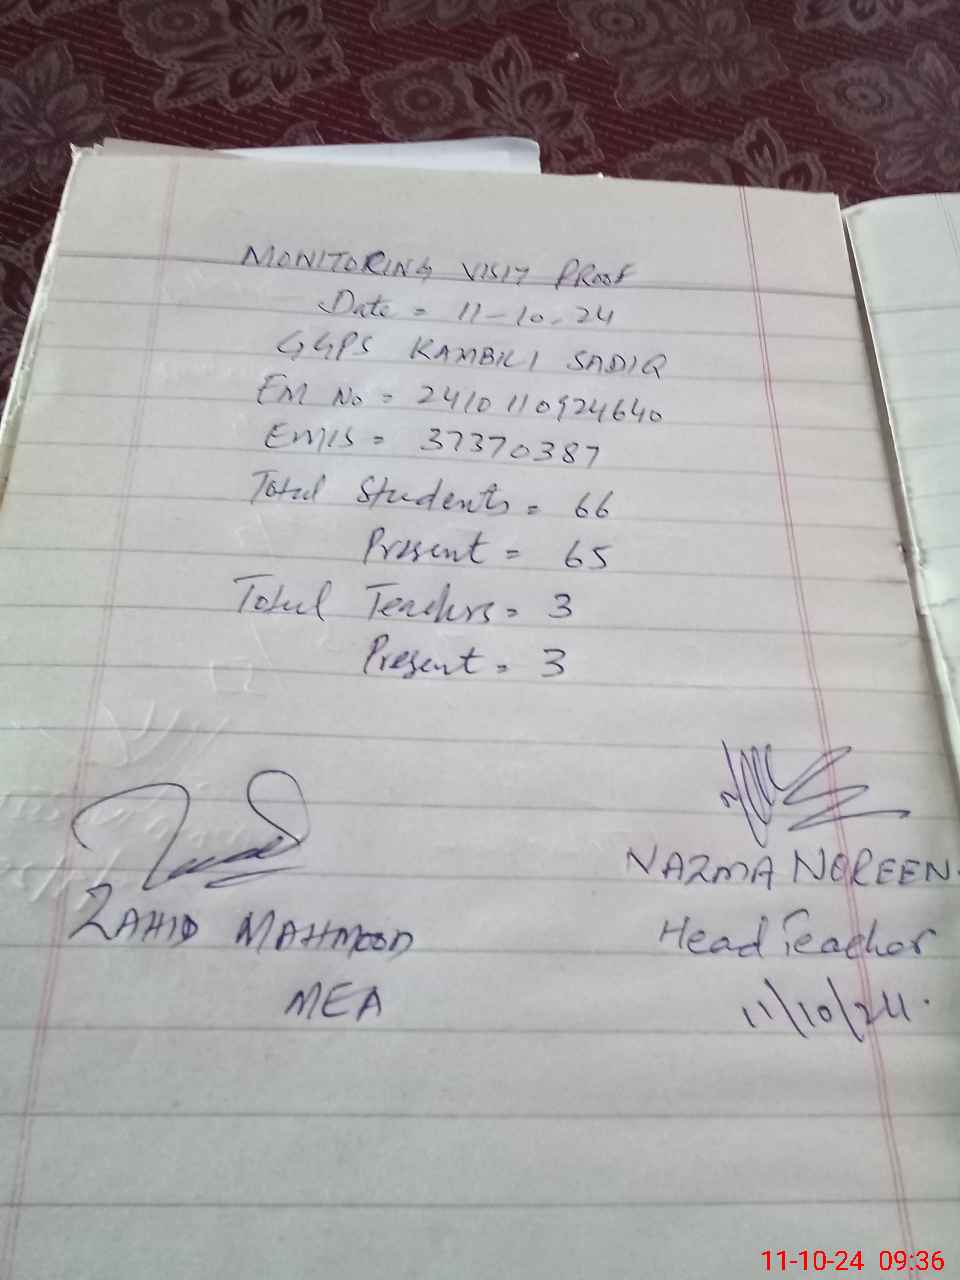 MONITORING VISIT PROOF
Date = 11-10-24
GGPS KAMBILI SADIQ
EM No = 2410110924640
EMIS = 37370387
Total Students = 66
Present = 65
Total Teachers = 3
Present = 3
ZAHID MAHMOOD
MEA
NAZMA NOREEN
Head Teacher
11/10/24.
11-10-24 09:36